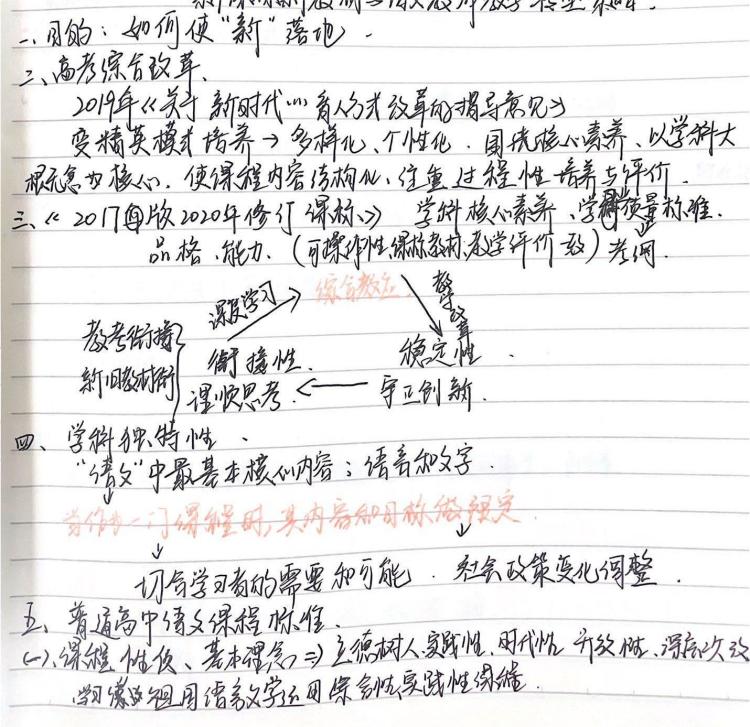 一、目的：如何使“新”落地．
二、高考综合改革．
2019年《关于新时代…育人方式改革的指导意见》
变精英模式培养→多样化、个性化．围绕核心素养、以学科大
概念为核心．使课程内容结构化、注重过程性培养与评价．
三、《2017年版2020年修订课标》 学科核心素养、学科质量标准．
品格、能力．（可操作性，课标教材，教学评价一致）考纲．
深度学习 综合 教学改革
教考衔接 衔接性． 稳定性．
新旧教材衔 理顺思考． ← 守正创新．
四、学科独特性．
“语文”中最基本核心内容：语言和文字．
当作为一门课程时，其内容和目标做预定．
切合学习者的需要和可能．社会政策变化调整．
五、普通高中语文课程标准．
(一)、课程性质、基本理念⇒立德树人、实践性、时代性 开放性、深层次改
祖国语言文字运用综合性实践性课程．